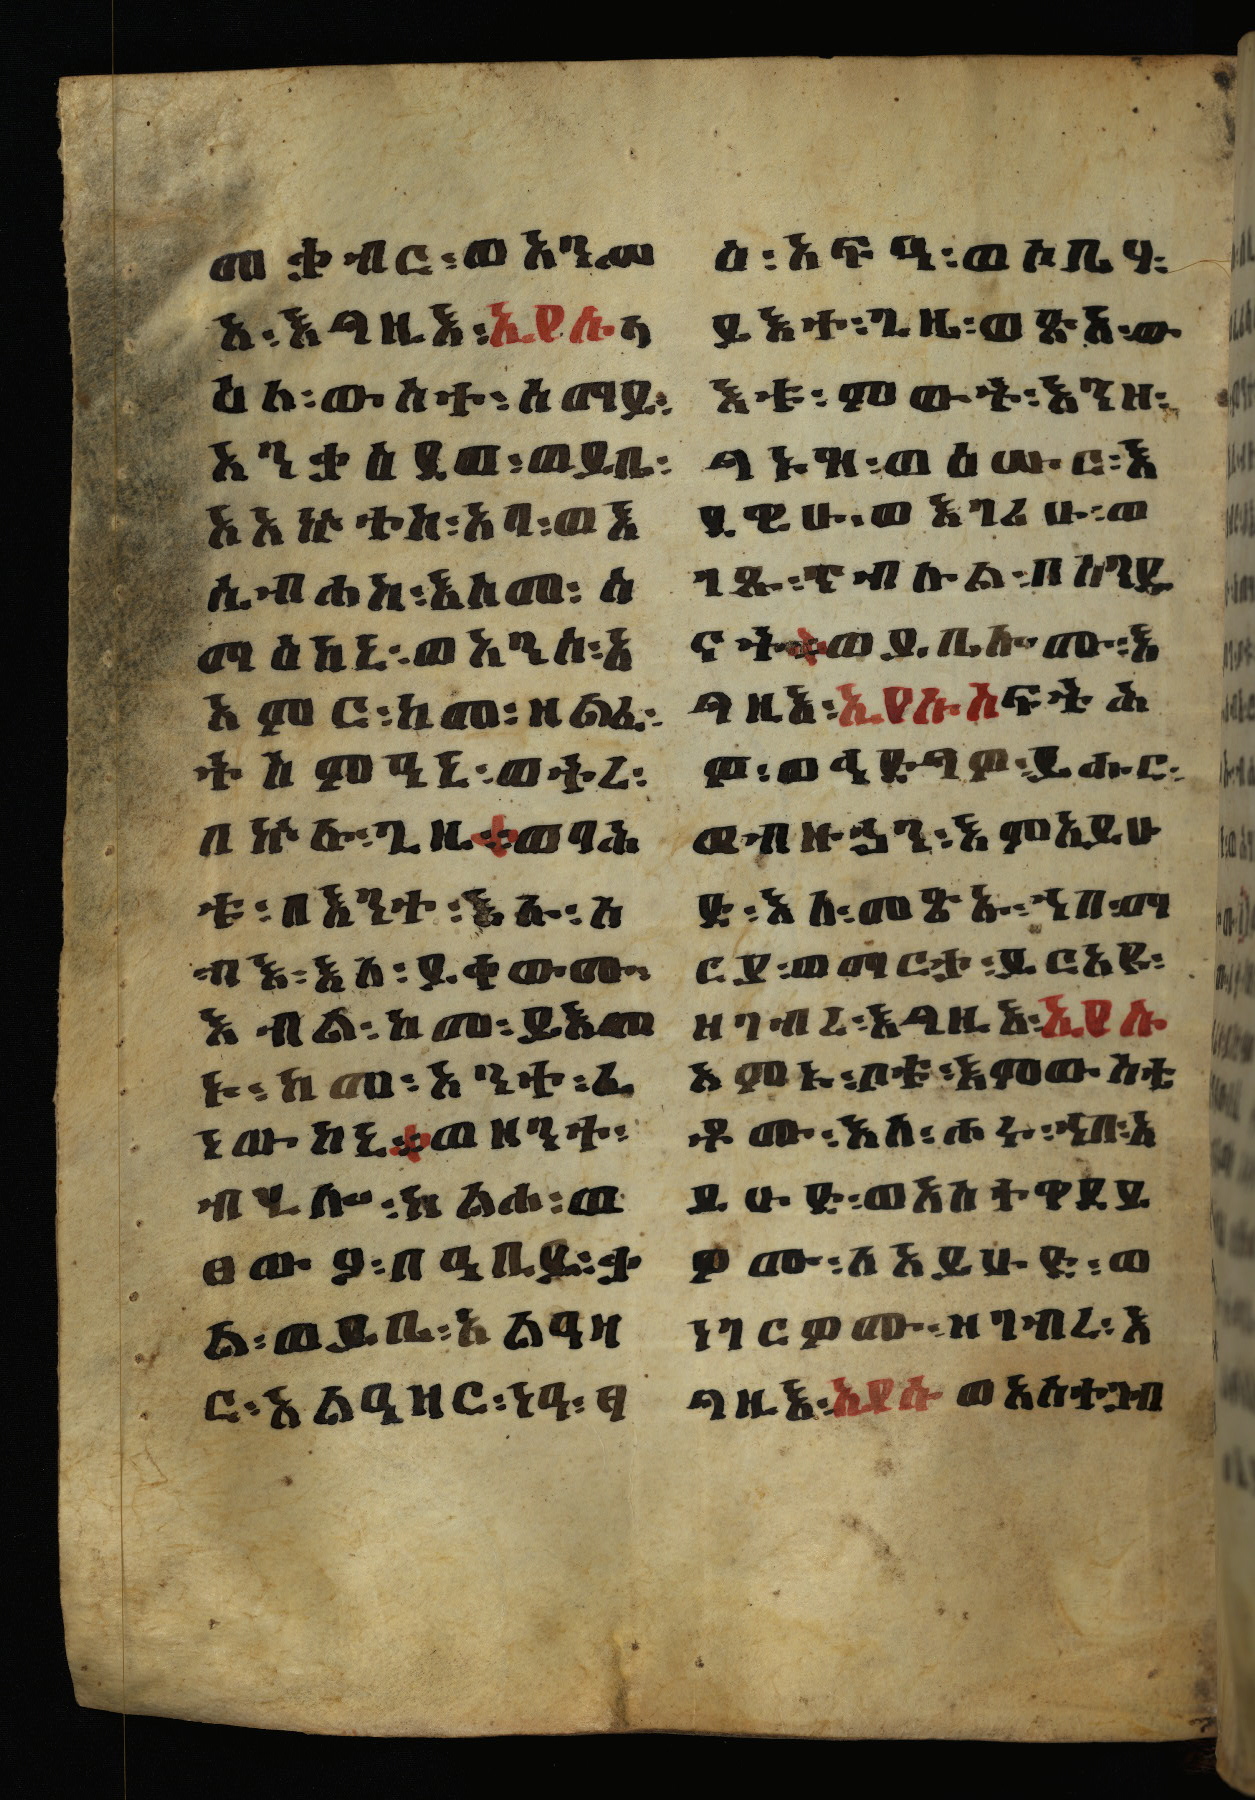 መቃብር፡ወአንሥ
አ፡እግዚእ፡ኢየሱስ
ዕለ፡ውስተ፡ሰማይ፡
አንቃዕደወ፡ወይቤ፡
አአኵተከ፡አባ፡ወእ
ሴብሐከ፡እስመ፡ሰ
ማዕከኒ፡ወአንሰ፡እ
አምር፡ከመ፡ዘልፈ፡
ትሰምዓኒ፡ወትረ፡
በኵሉ፡ጊዜ፡ወባሕ
ቱ፡በእንተ፡እሉ፡አ
ሕዛብ፡እለ፡ይቀውሙ፡
እብል፡ከመ፡ይእመ
ኑ፡ከመ፡አንተ፡ፈ
ነውከኒ፡ወዘንተ፡
ብሂሎ፡ከልሐ፡ወ
ፀውዓ፡በዓቢይ፡ቃ
ል፡ወይቤ፡አልዓዛ
ር፡አልዓዛር፡ነዓ፡ፃ
ዕ፡አፍዓ፡ወሶቤሃ፡
ይእተ፡ጊዜ፡ወጽአ፡ው
እቱ፡ምውት፡እንዘ፡
ግኑዝ፡ወዕሡር፡እ
ደዊሁ፡ወእገሪሁ፡ወ
ገጹ፡ጥብሉል፡በሰንደ
ናት፡ወይቤሎሙ፡እ
ግዚእ፡ኢየሱስ፡ፍትሕ
ዎ፡ወኅድግዎ፡ይሑር፡
ወብዙኃን፡እምአይሁ
ድ፡እለ፡መጽኡ፡ኀበ፡ማ
ርያ፡ወማርታ፡ይርአዩ፡
ዘገብረ፡እግዚእ፡ኢየሱስ
አምኑ፡ቦቱ፡እምውስቴ
ቶሙ፡እለ፡ሖሩ፡ኀበ፡አ
ይሁድ፡ወእለ፡ተዋደይ
ዎሙ፡ለአይሁድ፡ወ
ነገርዎሙ፡ዘገብረ፡እ
ግዚእ፡ኢየሱስ፡ወአስተጋብ